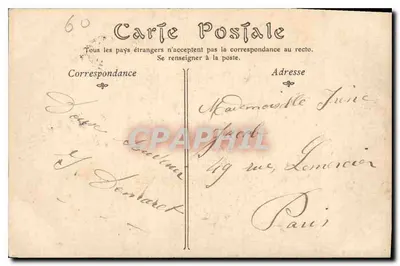 60
Carte Postale
Tous les pays étrangers n'acceptent pas la correspondance au recto.
Se renseigner à la poste.
Correspondance
Adresse
Doux
Y. Demaret
Mademoiselle Irène
Jacob
49 rue Lemercier
Paris
CARTES
CPARHIL